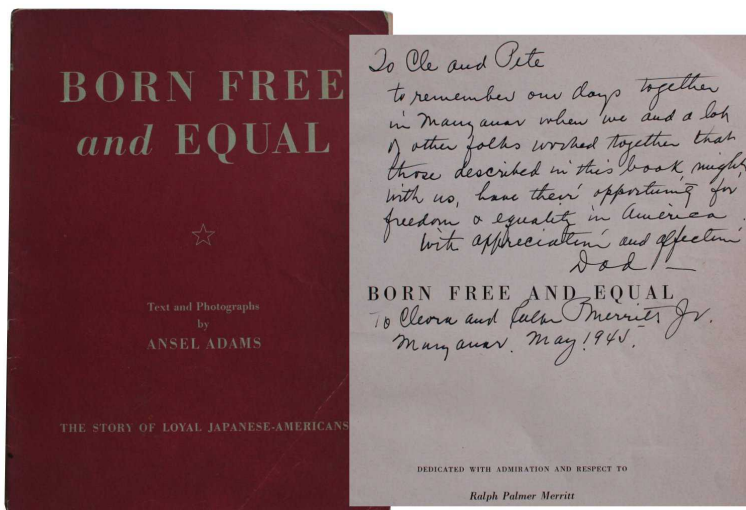 BORN FREE
and EQUAL
Text and Photographs
by
ANSEL ADAMS
THE STORY OF LOYAL JAPANESE-AMERICANS
To Cle and Pete
to remember our days together
in Manzanar when we and a lot
of other folks worked together that
those described in this book, might
with us, have their opportunity for
freedom & equality in America.
With appreciation and affection
Dad —
BORN FREE AND EQUAL
To Cleora and Ralph Merritt Jr.
Manzanar. May 1945.
DEDICATED WITH ADMIRATION AND RESPECT TO
Ralph Palmer Merritt